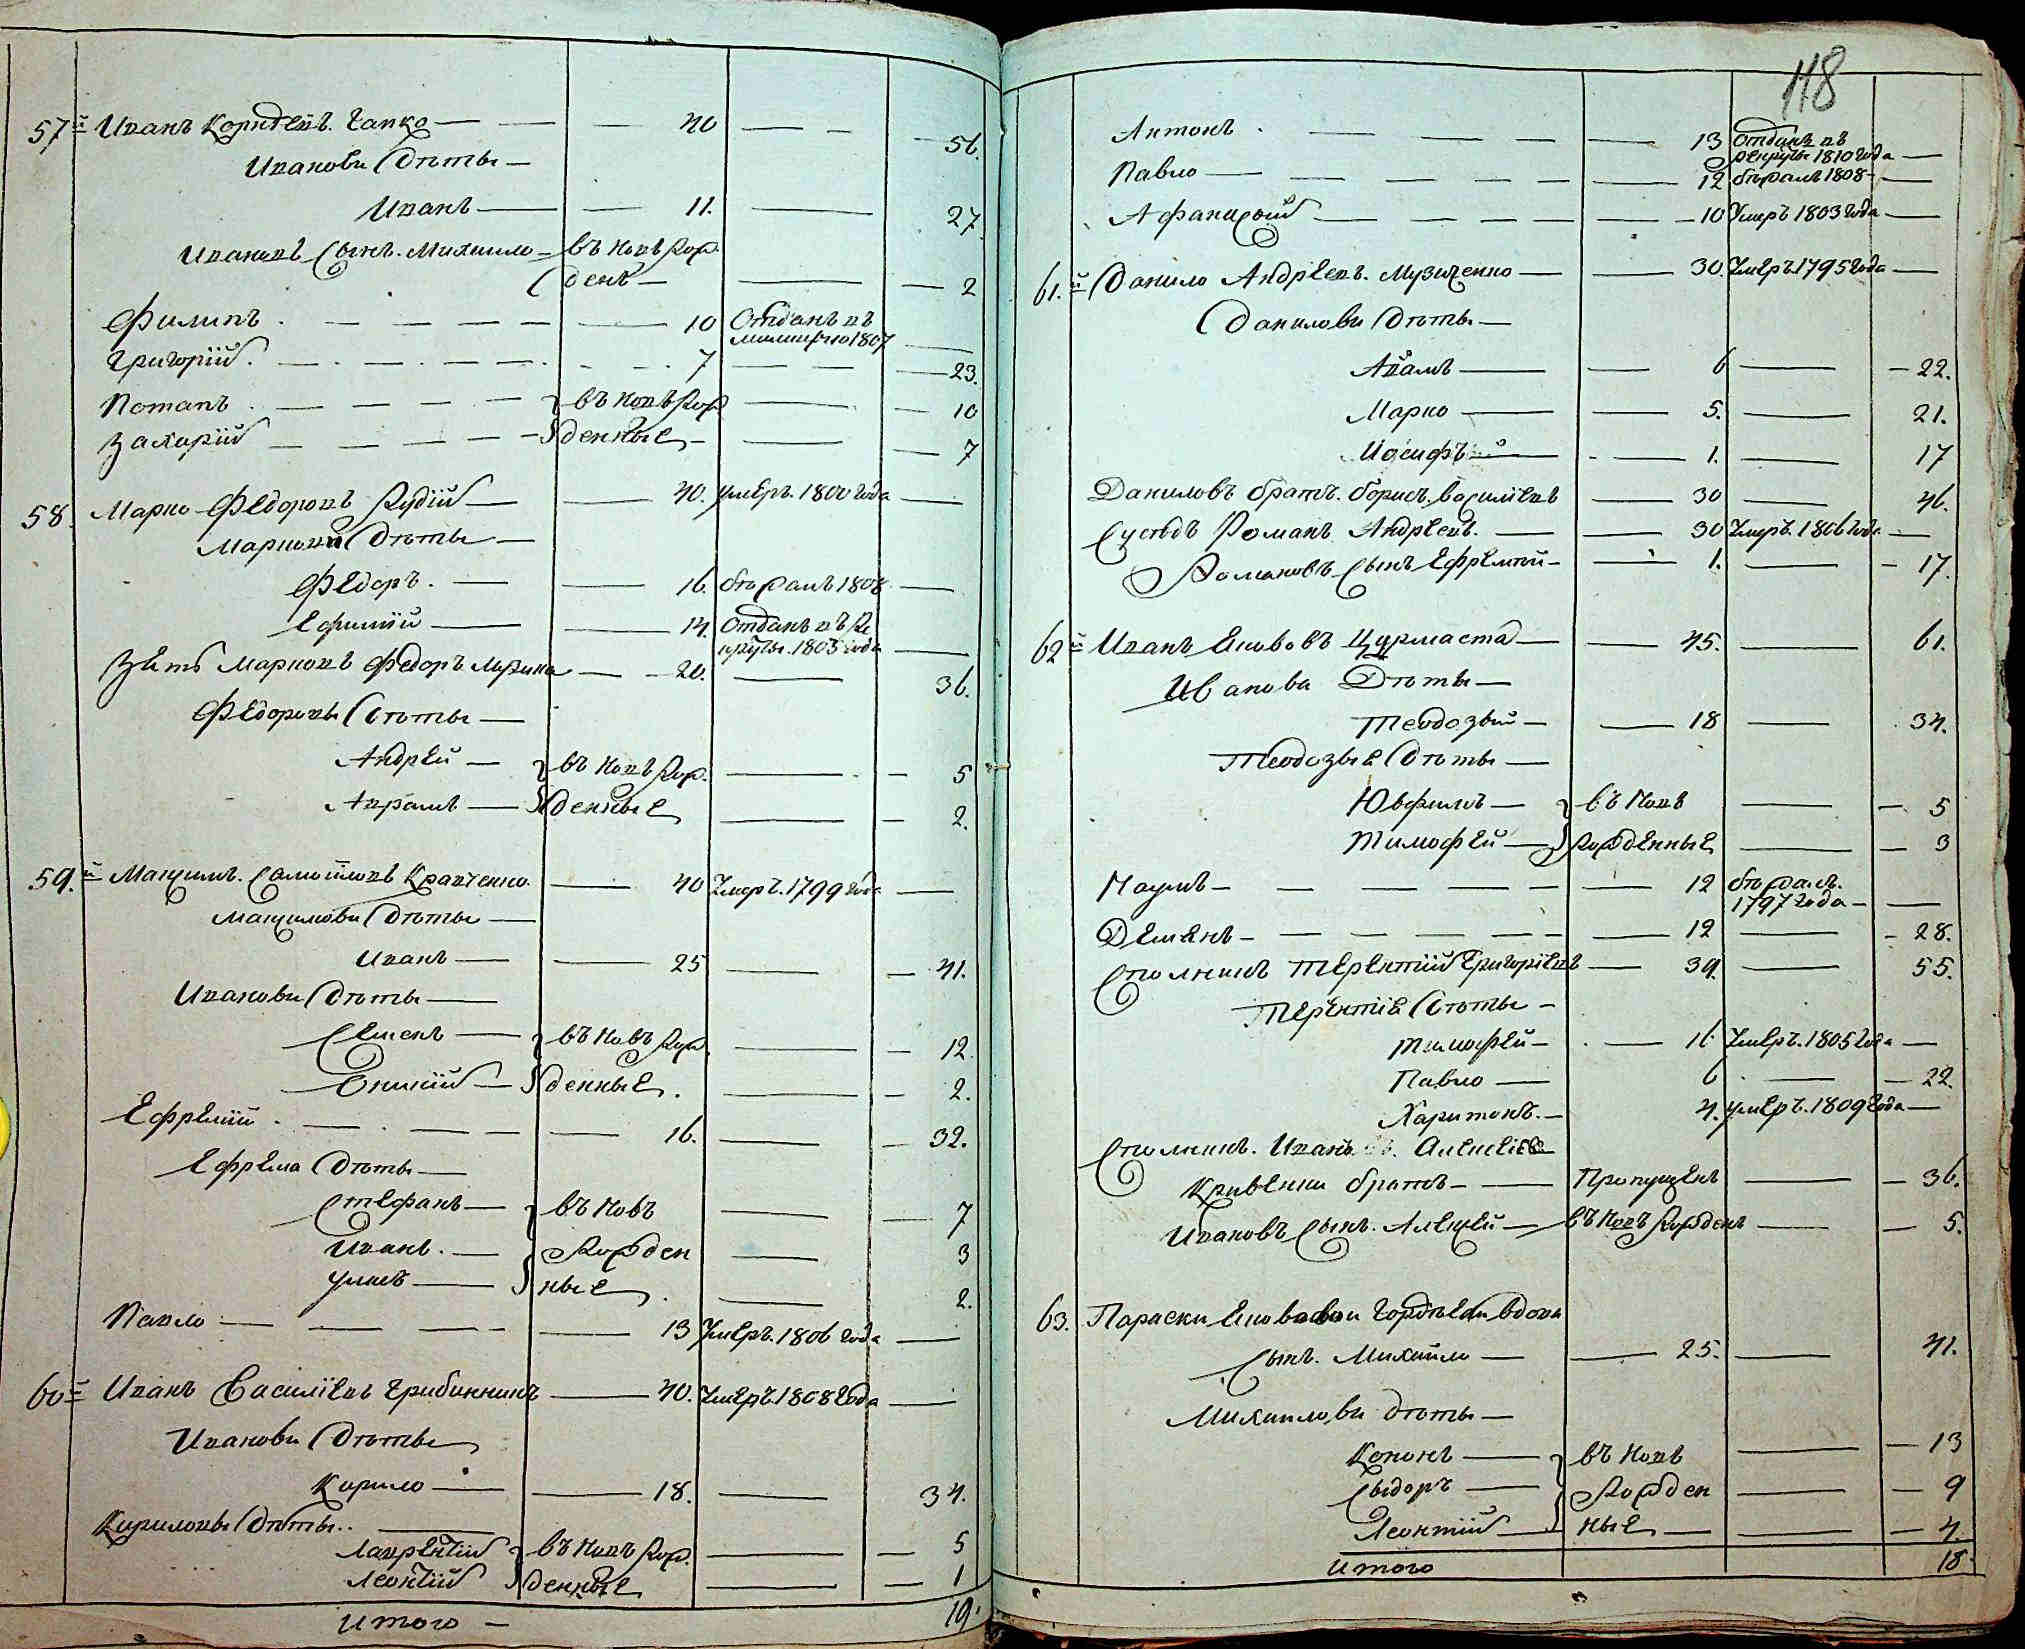 57й Иванъ Корнѣевъ Гапко — 40 — 56.
Ивановы Дѣты —
Иванъ — 11. — 27.
Ивановъ Сынъ. Михайло — въ новъ рож
денъ — 2
Филипъ — 10 Отданъ въ
милицію 1807 —
Григорій — 7 — 23.
Потапъ — въ новѣ рож — 10
Захарій — денные — 7
58. Марко Федоровъ Рудій — 40. умеръ. 1800 года —
Марковы Дѣты —
Федоръ. — 16. бѣжалъ 1808 —
Ефимій — 14. Отданъ въ ре
круты. 1803 года —
Зять Марковъ Федоръ — 20. — 36.
Федоровы Дѣты —
Андрей — въ новѣ рож. — 5
Аврамъ — денные — 2.
59.й Максимъ. Самойловъ Кравченко. — 40 Умеръ. 1799 года —
Максимовы Дѣты —
Иванъ — 25 — 41.
Ивановы Дѣты —
Семенъ — въ новъ рож. — 12.
Онисій — денные. — 2.
Ефремій — 16. — 32.
Ефрема Дѣты —
Стефанъ — въ новъ — 7
Иванъ. — рожден — 3
— ные — 2.
Павло — 13 Умеръ. 1806 года —
60й Иванъ Василіевъ Грибинникъ — 40. Умеръ 1808 года —
Ивановы Дѣты
Кирило — 18. — 34.
Кириловы Дѣты. —
Лаврентій въ новъ рож. — 5
Леонтій денные — 1
Итого — 19.
118
Антонъ — 13 Отданъ въ
рекруты 1810 года —
Павло — 12 бѣжалъ 1808 —
Афанасій — 10 Умеръ 1803 года —
61.й Данило Андреевъ. Музиченко — 30. Умеръ. 1795 года —
Даниловы Дѣты —
Адамъ — 6 — 22.
Марко — 5. — 21.
Иосифъ — 1. — 17
Даниловъ братъ. Борисъ Василіевъ — 30 — 46.
Сусѣдъ Романъ Андреевъ. — 30 Умеръ. 1806 года —
Романовъ Сынъ Ефремій — 1. — 17.
62й Иванъ Якововъ Цурмаста — 45. — 61.
Иванова Дѣты —
Теодозій — 18 — 34.
Теодозіе Дѣты —
Юхфимъ — въ новѣ — 5
Тимофей — рожденные — 3
Наумъ — 12 бѣжалъ.
1797 года —
Демянъ — 12 — 28.
Сполникъ Терентій Григоріевъ — 39. — 55.
Терентіе Дѣты —
Тимофей — 16. Умеръ. 1805 года —
Павло — 6 — 22.
Харитонъ. — 4. умеръ. 1809 года —
Сполникъ. Иванъ. Алексіевъ
Кривенки братъ — Пропущенъ — 36.
Ивановъ Сынъ. Алексей — въ новъ рожденъ — 5.
63. Параски Яковловой Гордѣевой вдовы
Сынъ. Михайло — 25. — 41.
Михайловы дѣты —
Кононъ — въ новѣ — 13
Сыдоръ — рожден — 9
Леонтій — ные — 4.
Итого 18.